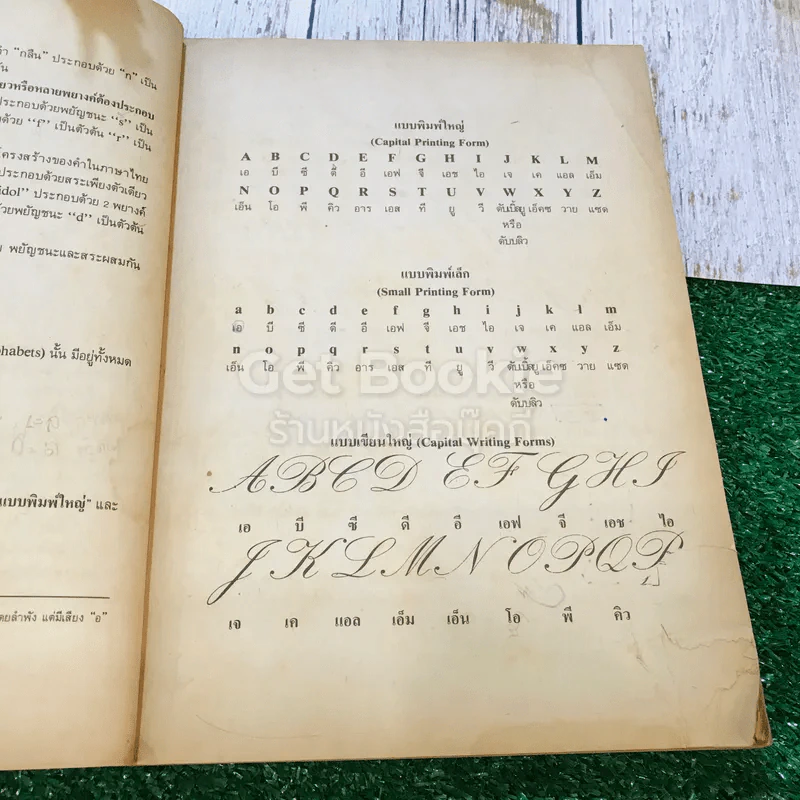 ำ "กลืน" ประกอบด้วย "ก" เป็น
ัน
ียวหรือหลายพยางค์ต้องประกอบ
ประกอบด้วยพยัญชนะ "s" เป็น
ด้วย "f" เป็นตัวต้น "r" เป็น
โครงสร้างของคำในภาษาไทย
ประกอบด้วยสระเพียงตัวเดียว
idol" ประกอบด้วย 2 พยางค์
ด้วยพยัญชนะ "d" เป็นตัวต้น
พยัญชนะและสระผสมกัน
phabets) นั้น มีอยู่ทั้งหมด
แบบพิมพ์ใหญ่" และ
ดยลำพัง แต่มีเสียง "อ"
แบบพิมพ์ใหญ่
(Capital Printing Form)
A B C D E F G H I J K L M
เอ บี ซี ดี อี เอฟ จี เอช ไอ เจ เค แอล เอ็ม
N O P Q R S T U V W X Y Z
เอ็น โอ พี คิว อาร เอส ที ยู วี ดับเบิ้ลยู เอ็คซ วาย แซด
หรือ
ดับบลิว
แบบพิมพ์เล็ก
(Small Printing Form)
a b c d e f g h i j k l m
เอ บี ซี ดี อี เอฟ จี เอช ไอ เจ เค แอล เอ็ม
n o p q r s t u v w x y z
เอ็น โอ พี คิว อาร เอส ที ยู วี ดับเบิ้ลยู เอ็คซ วาย แซด
หรือ
ดับบลิว
Get Bookie
ร้านหนังสือบุ๊คกี้
แบบเขียนใหญ่ (Capital Writing Forms)
A B C D E F G H I
เอ บี ซี ดี อี เอฟ จี เอช ไอ
J K L M N O P Q P
เจ เค แอล เอ็ม เอ็น โอ พี คิว